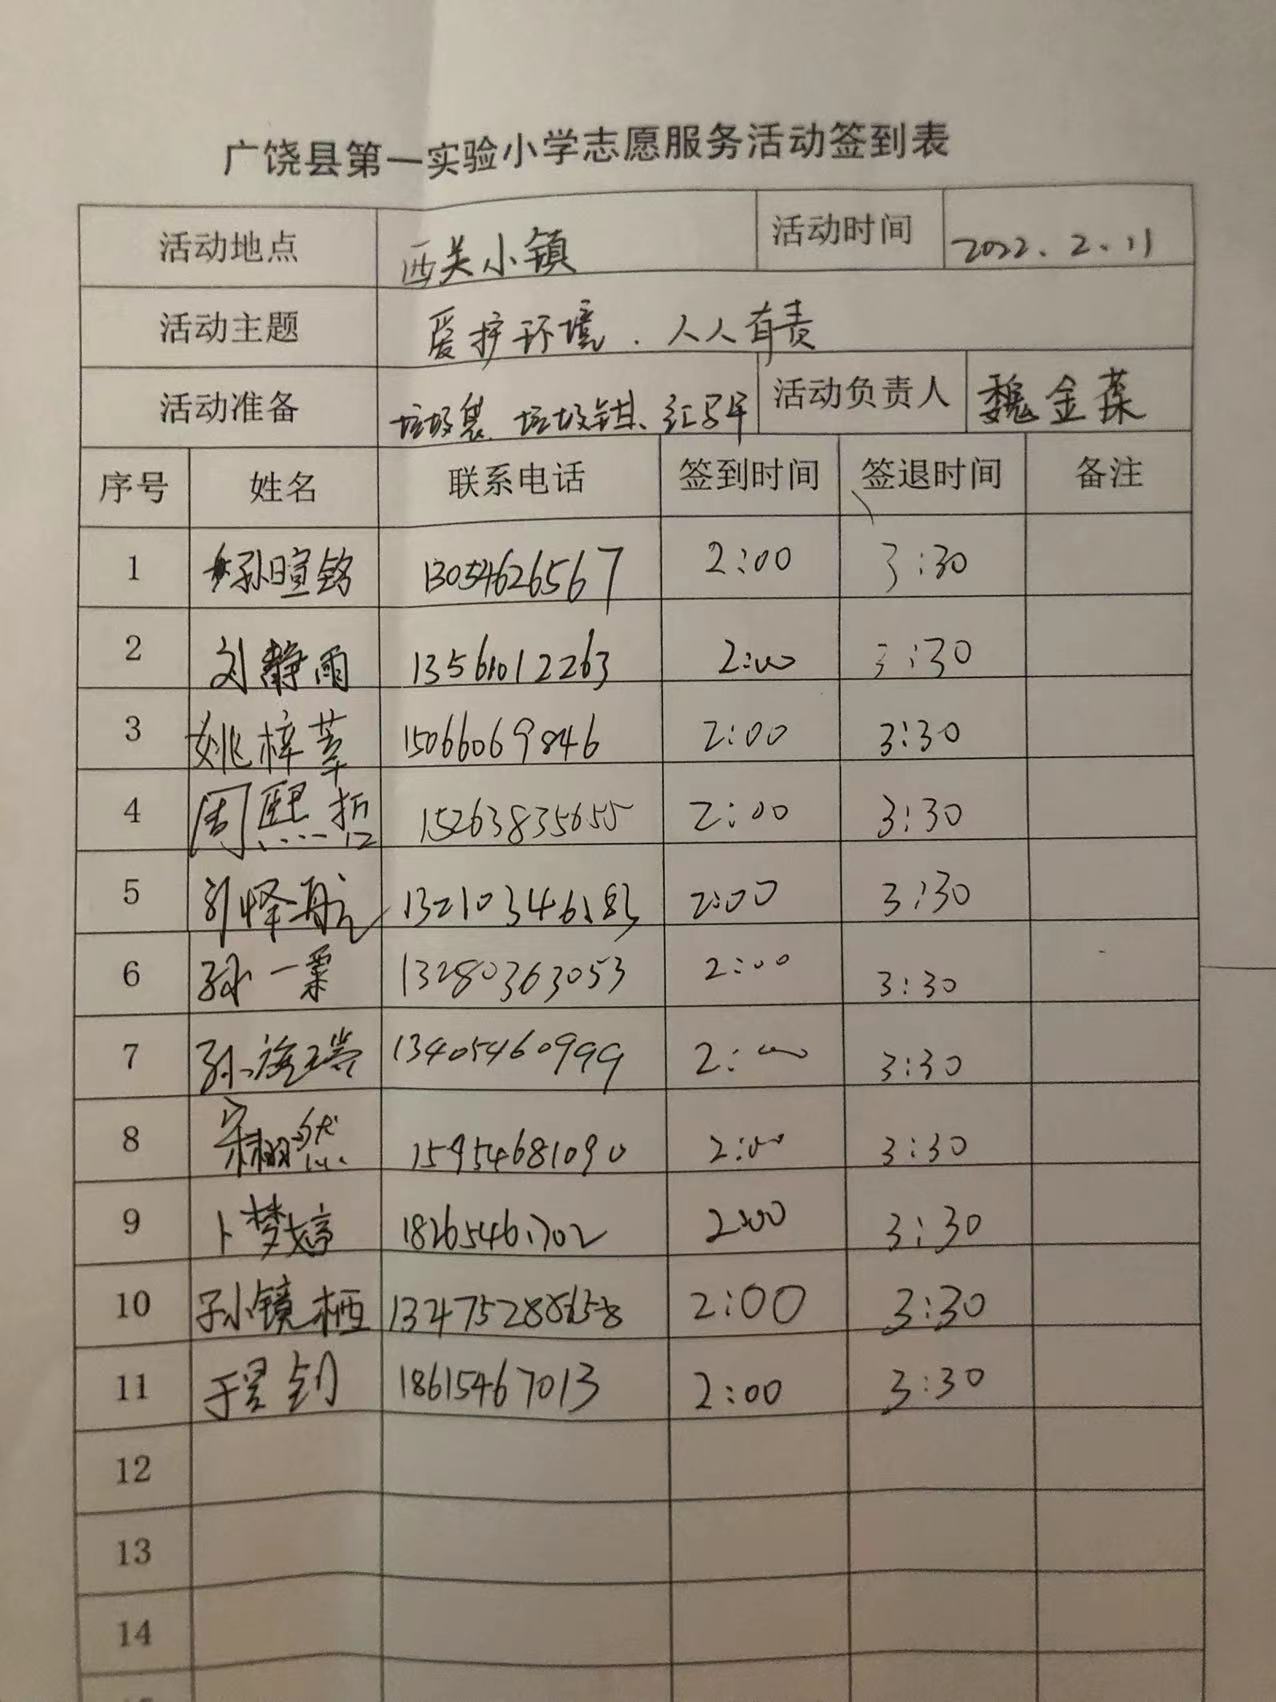 广饶县第一实验小学志愿服务活动签到表
活动地点 西关小镇 活动时间 2022.2.11
活动主题 爱护环境.人人有责
活动准备 垃圾袋、垃圾钳、红马甲 活动负责人 魏金葆
序号 姓名 联系电话 签到时间 签退时间 备注
1 孙暄铭 13054626567 2:00 3:30
2 刘静雨 13561012263 2:00 3:30
3 姚梓莘 15066069846 2:00 3:30
4 周熙哲 15263835655 2:00 3:30
5 刘怿航 13210346183 2:00 3:30
6 孙一粟 13280363053 2:00 3:30
7 13405460999 2:00 3:30
8 宋栩然 15954681090 2:00 3:30
9 卜梦婷 18265461702 2:00 3:30
10 孙镜栖 2:00 3:30
11 于昊钊 18615467013 2:00 3:30
12
13
14